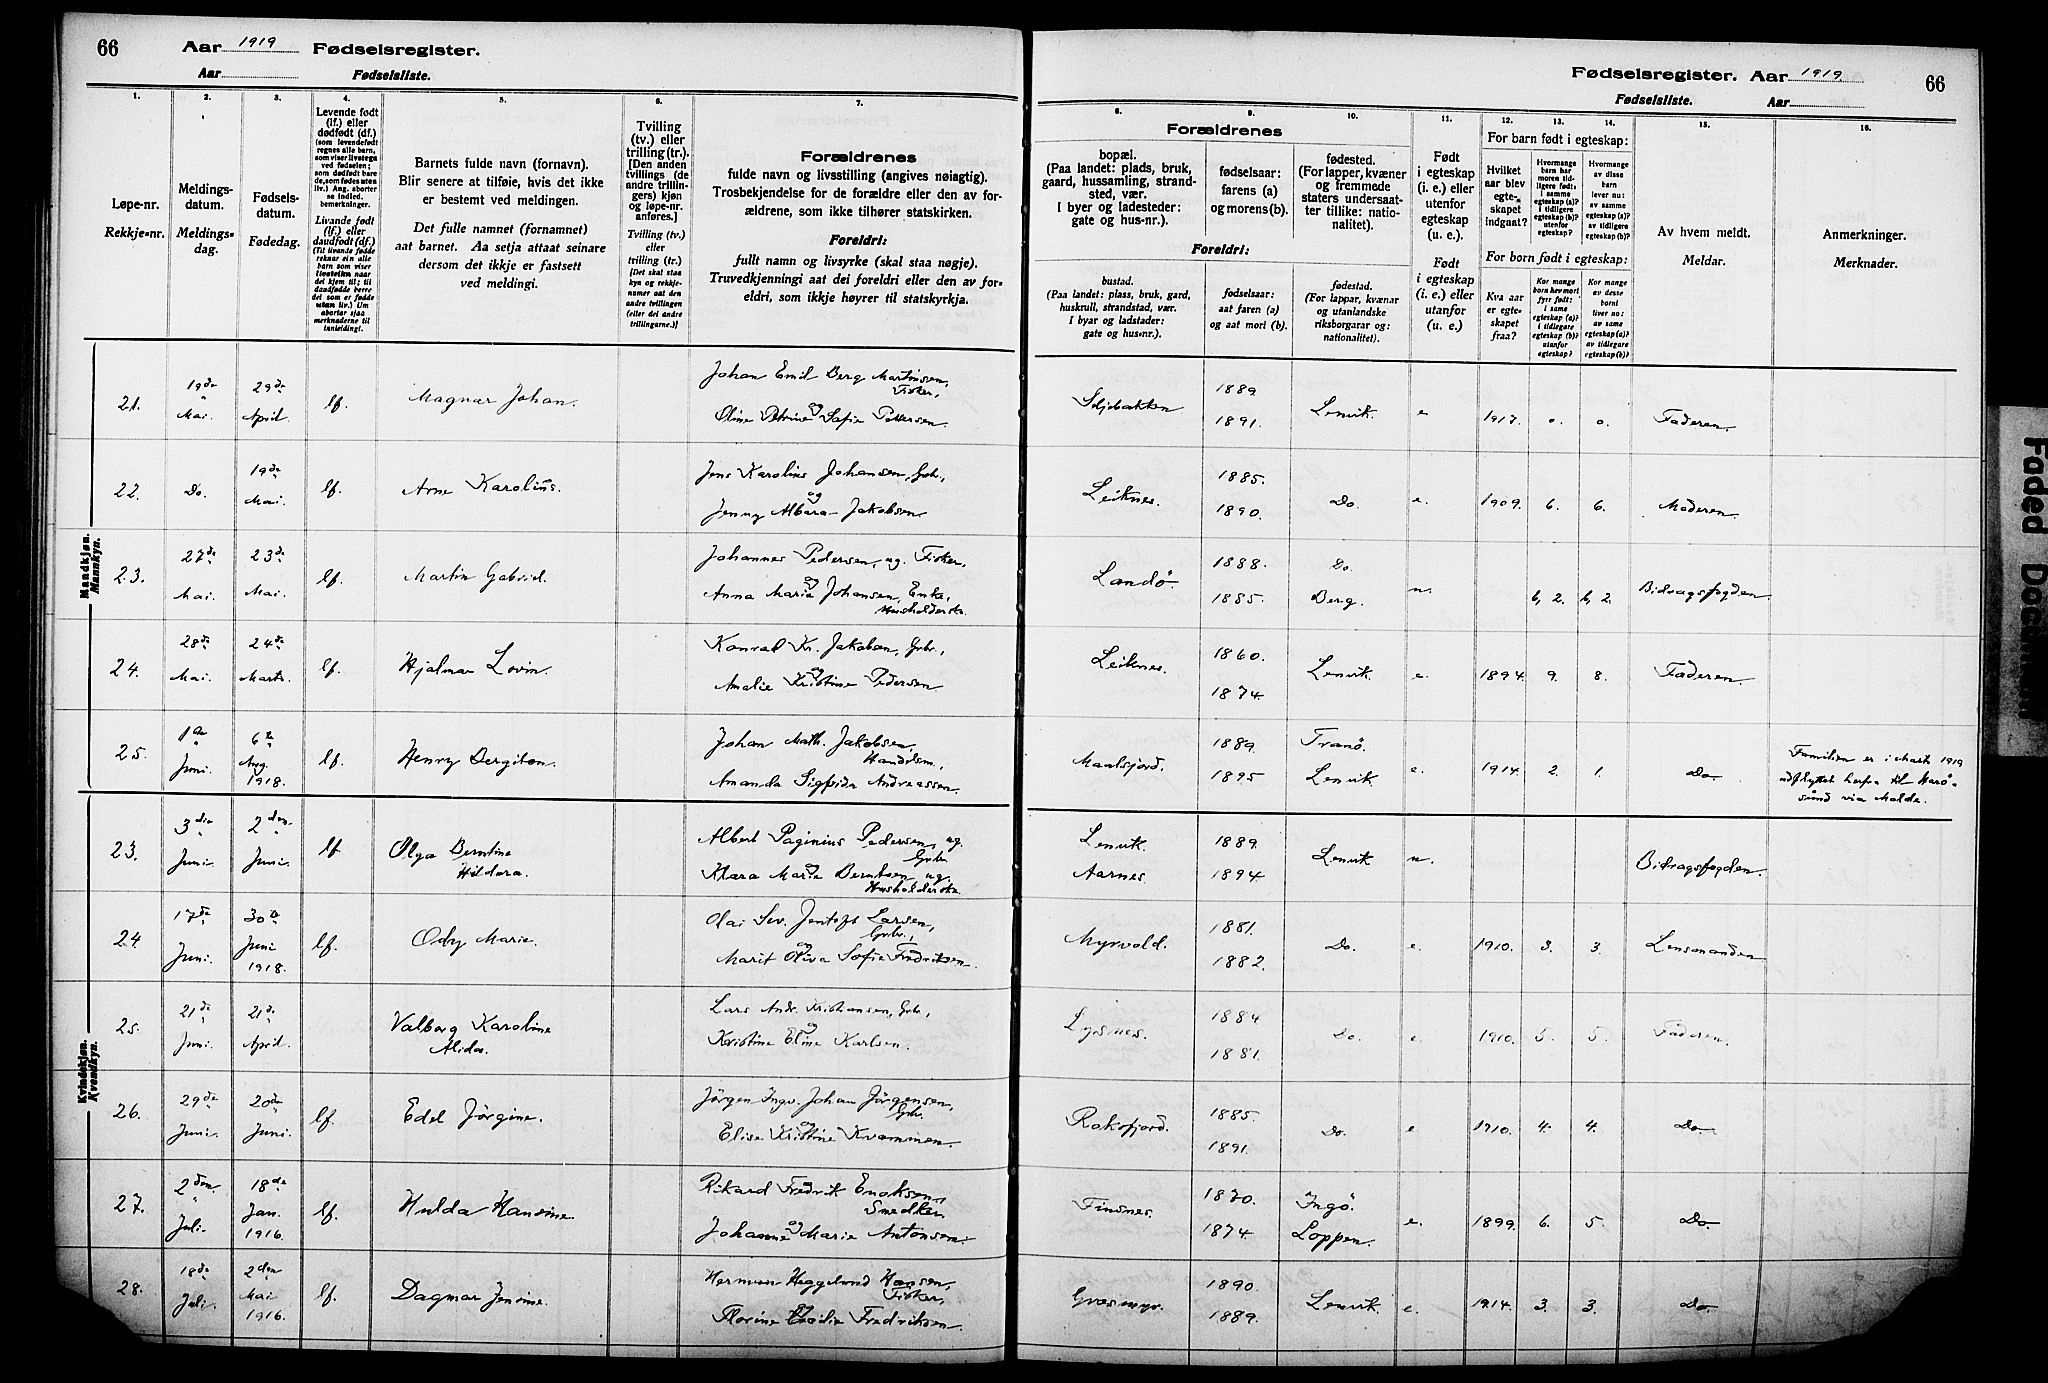 66 Aar 1919 Fødselsregister.
Aar Fødselsliste.
Fødselsregister. Aar 1919 66
Fødselsliste. Aar
1. 2. 3. 4. 5. 6. 7.
Løpe-nr.
Rekkje-nr.
Meldings-
datum.
Meldings-
dag.
Fødsels-
datum.
Fødedag.
Levende født
(lf.) eller
dødfødt (df.)
(som levendefødt
regnes alle barn,
som viser livstegn
ved fødselen;
som dødfødt bare
de, som fødes uten
liv.) Ang. aborter
se indled.
bemerkninger.
Livande født
(lf.) eller
daudfødt (df.)
(Til livande fødde
reknar ein alle
barn som viser
livsteikn naar
dei kjem til; til
daudfødde berre
dei som er fødde
utan liv.) Um
abortar sjaa
merknaderne til
innleiding!
Barnets fulde navn (fornavn).
Blir senere at tilføie, hvis det ikke
er bestemt ved meldingen.
Det fulle namnet (fornamnet)
aat barnet. Aa setja attaat seinare
dersom det ikkje er fastsett
ved meldingi.
Tvilling
(tv.) eller
trilling (tr.).
[Den anden
tvillings (de
andre trillin-
gers) kjøn
og løpe-nr.
anføres.]
Tvilling (tv.)
eller
trilling (tr.)
[Det skal staa
kyn og rekkje-
numer aat den
andre tvillingen
(eller dei andre
trillingarne.)]
Forældrenes
fulde navn og livsstilling (angives nøiagtig).
Trosbekjendelse for de forældre eller den av for-
ældrene, som ikke tilhører statskirken.
Foreldri:
fullt namn og livsyrke (skal staa nøgje).
Truvedkjenningi aat dei foreldri eller den av for-
eldri, som ikkje høyrer til statskyrkja.
8. 9. 10. 11. 12. 13. 14. 15. 16.
Forældrenes
bopæl.
(Paa landet: plads, bruk,
gaard, hussamling, strand-
sted, vær.
I byer og ladesteder:
gate og hus-nr.).
fødselsaar:
farens (a)
og morens (b).
fødested.
(For lapper, kvæner
og fremmede
staters undersaat-
ter tillike: natio-
nalitet).
Foreldri:
bustad.
(Paa landet: plass, bruk, gard,
huskrull, strandstad, vær.
I byar og ladstader:
gate og hus-nr.).
fødselsaar:
aat faren (a)
og aat mori (b).
fødestad.
(For lappar, kvænar
og utanlandske
riksborgarar og:
nationalitet).
Født
i egteskap
(i. e.) eller
utenfor
egteskap
(u. e.).
Født
i egteskap
(i. e.) eller
utanfor
(u. e.)
For barn født i egteskap:
Hvilket
aar blev
egte-
skapet
indgaat?
Hvormange
barn har
moren tid-
ligere født:
i samme
egteskap (a)?
i tidligere
egteskap (b)?
utenfor
egteskap?
Hvormange
av disse
barn
lever nu:
av samme
egteskap (a)?
av tidligere
egteskap (b)?
For born født i egteskap:
Kva aar
er egte-
skapet
fraa?
Kor mange
born hev mori
fyrr født:
i same
egteskap (a)?
i tidlegare
egteskap (b)?
utanfor
egteskap?
Kor mange
av desse
borni
liver no:
av same
egteskap (a)?
av tidlegare
egteskap (b)?
Av hvem meldt.
Meldar.
Anmerkninger.
Merknader.
Mandkjøn.
Mannkyn.
21. 19de Mai. 29de April. lf. Magnar Johan. Johan Emil Berg Martinsen, Fisker,
og Oline Petrine Sofie Pettersen. 1889. 1891. Lenvik. e 1917. 0. 0. Faderen.
22. Do. 19de Mai. lf. Arne Karolius. Jens Karolius Johansen, Gbr.,
og Jenny Albara Jakobsen Leiknes. 1885. 1890. Do. e. 1909. 6. 6. Moderen.
23. 27de Mai. 23de Mai. lf. Martin Gabriel. Johannes Pedersen, ug. Fisker,
og Anna Marie Johansen, Enke, Husholderske. Landö. 1888. 1885. Do. Berg. u. 6, 2. 6, 2. Bidragsfogden
24. 28de Mai. 24de Marts. lf. Hjalmar Lovin. Konrad Kr. Jakobsen, Gbr.,
og Amalie Kristine Pedersen Leiknes. 1860. 1874. Lenvik e. 1894. 9. 8. Faderen.
25. 1ste Juni. 6te Aug. 1918. lf. Henry Bergiton. Johan Math. Jakobsen, Handelsm.,
Amanda Sigfrida Andreassen. Maalsfjord. 1889. 1895. Tranö. Lenvik e. 1914. 2. 1. Do. Familien er i Marts 1919
udflyttet herfra til Harö-
sund via Molde.
Kvindekjøn.
Kvendkyn.
23. 3die Juni. 2den Juni. lf Olga Berntine
Hildora. Albert Paginius Pedersen, ug. Gbr.
og Klara Marie Berntsen ug. Husholderske. Lenvik. Aarnes. 1889. 1894. Lenvik u. Bidragsfogden.
24. 17de Juni. 30te Juni 1918. lf. Ody Marie. Olai Sev. Jentoft Larsen, Gbr.,
og Marit Oliva Sofie Fredriksen. Myrvold. 1881. 1882. Do. e. 1910. 3. 3. Lensmanden
25. 21de Juni. 21de April. lf. Valborg Karoline
Alida. Lars Andr. Kristiansen, Gbr.,
og Kristine Eline Karlsen. Lysnes. 1884 1881. Do. e. 1910. 5. 5. Faderen.
26. 29de Juni. 20de Juni. lf. Edel Jörgine. Jörgen Ingv. Johan Jörgensen, Gbr.
og Elise Kristine Kvammen. Roksfjord. 1885. 1891. Do. e 1910. 4. 4. Do.
27. 2den Juli. 18de Jan. 1916. lf. Hulda Hansine. Rikard Fredrik Enoksen, Smedker,
og Johanne Marie Antonsen. Finsnes. 1870. 1874. Ingö. Loppen. e. 1899. 6. 5. Do
28. 18de Juli. 2den Mai 1916. lf. Dagmar Jensine. Herman Heggelund Hansen, Fisker,
og Florine Cecilie Fredriksen. Græsmyr. 1890. 1889. Lenvik. e. 1914. 3. 3. Do
Faded Document